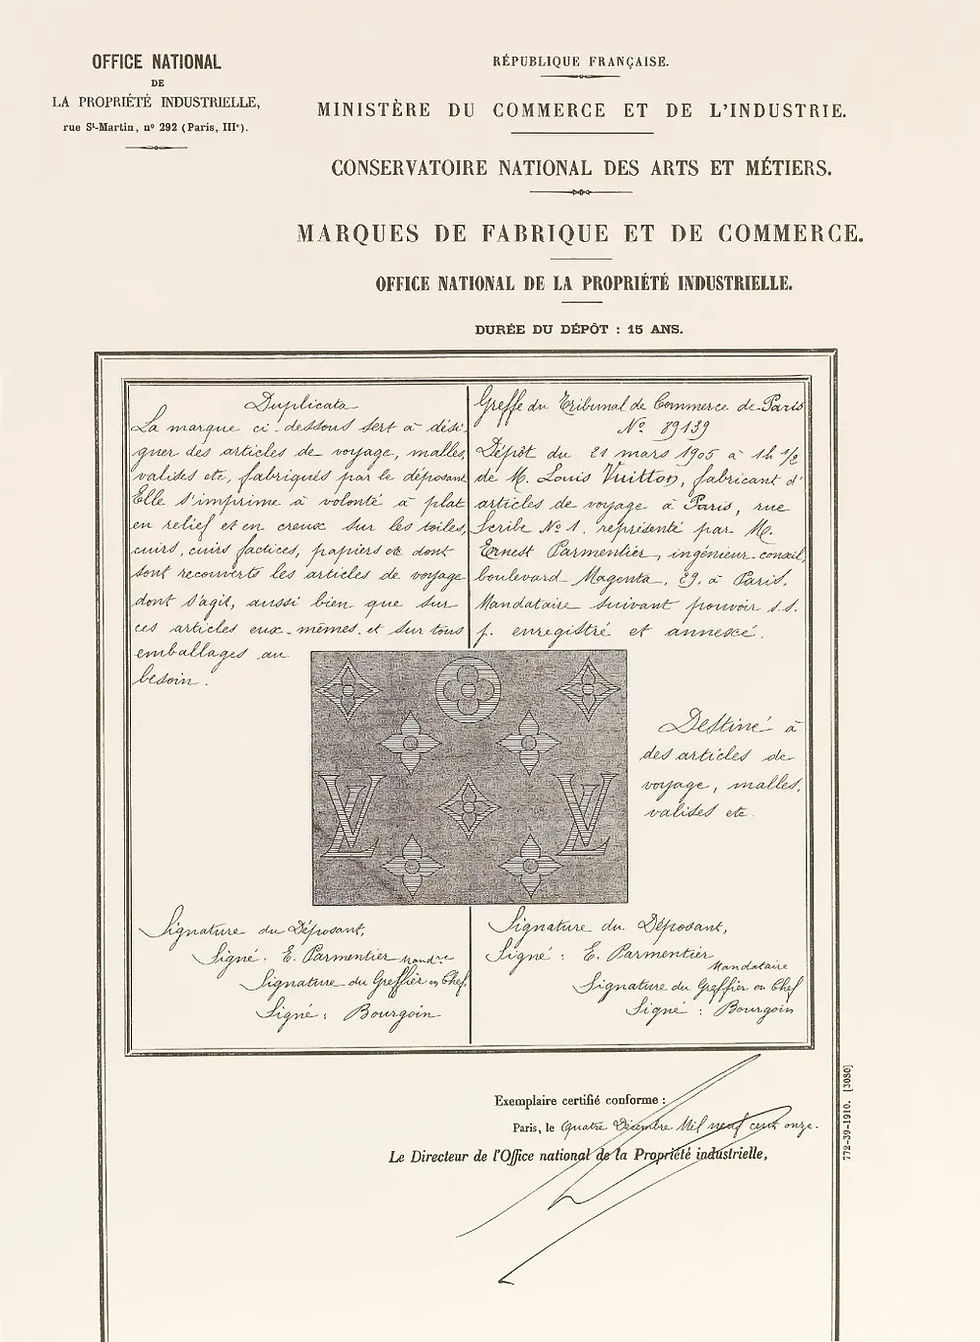 OFFICE NATIONAL
DE
LA PROPRIÉTÉ INDUSTRIELLE,
rue St-Martin, no 292 (Paris, IIIe).
RÉPUBLIQUE FRANÇAISE.
MINISTÈRE DU COMMERCE ET DE L'INDUSTRIE.
CONSERVATOIRE NATIONAL DES ARTS ET MÉTIERS.
MARQUES DE FABRIQUE ET DE COMMERCE.
OFFICE NATIONAL DE LA PROPRIÉTÉ INDUSTRIELLE.
DURÉE DU DÉPÔT : 15 ANS.
Duplicata
La marque ci-dessous sert à dési-
gner des articles de voyage, malles,
valises etc, fabriqués par le déposant
Elle s'imprime à volonté à plat
en relief et en creux sur les toiles,
cuirs, cuirs factices, papiers etc dont
sont recouverts les articles de voyage
dont s'agit, aussi bien que sur
ces articles eux-mêmes et sur tous
emballages au
besoin.
Greffe du Tribunal de Commerce de Paris
No 89139
Dépôt du 21 mars 1905 à 1h 1/2
de M. Louis Vuitton, fabricant d'
articles de voyage à Paris, rue
Scribe No 1. représenté par M.
Ernest Parmentier, ingénieur-conseil,
boulevard Magenta, 29, à Paris,
Mandataire suivant pouvoir s.s.
p. enregistré et annexé.
LV LV
Destiné à
des articles de
voyage, malles,
valises etc.
Signature du Déposant,
Signé : E. Parmentier Mandre
Signature du Greffier en Chef
Signé : Bourgoin
Signature du Déposant,
Signé : E. Parmentier
Mandataire
Signature du Greffier en Chef
Signé : Bourgoin
Exemplaire certifié conforme :
Paris, le Quatre Décembre Mil neuf cent onze.
Le Directeur de l'Office national de la Propriété industrielle,
772-39-1910. [3080]